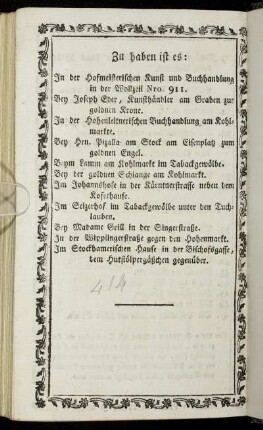 Zu haben ist es:
In der Hofmeisterischen Kunst und Buchhandlung
in der Wollzeil Nro. 911.
Bey Joseph Eder, Kunsthändler am Graben zur
goldnen Krone.
In der Hohenleitnerischen Buchhandlung am Kohl-
markte.
Bey Hrn. Pizalla am Stock am Eisenplatz zum
goldnen Engel.
Beym Lamm am Kohlmarkt im Tabackgewölbe.
Bey der goldnen Schlange am Kohlmarkt.
Im Johannshofe in der Kärntnerstrasse neben dem
Koferhause.
Im Seizerhof im Tabackgewölbe unter den Tuch-
lauben.
Bey Madame Grill in der Singerstraße.
In der Wipplingerstraße gegen den Hohenmarkt.
Im Stockhamerischen Hause in der Bischofsgasse,
dem Hutstölpergäßchen gegenüber.
414